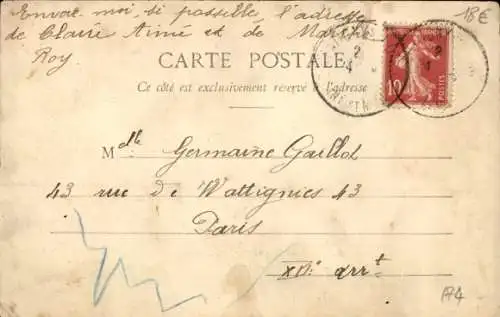 Envoie moi, si possible, l'adresse
de Claire Aimé et de Marthe
Roy
18€
CARTE POSTALE
Ce côté est exclusivement réservé à l'adresse
10
POSTES
Mdlle Germaine Gaillot
43 rue de Wattignies 43
Paris
arrt